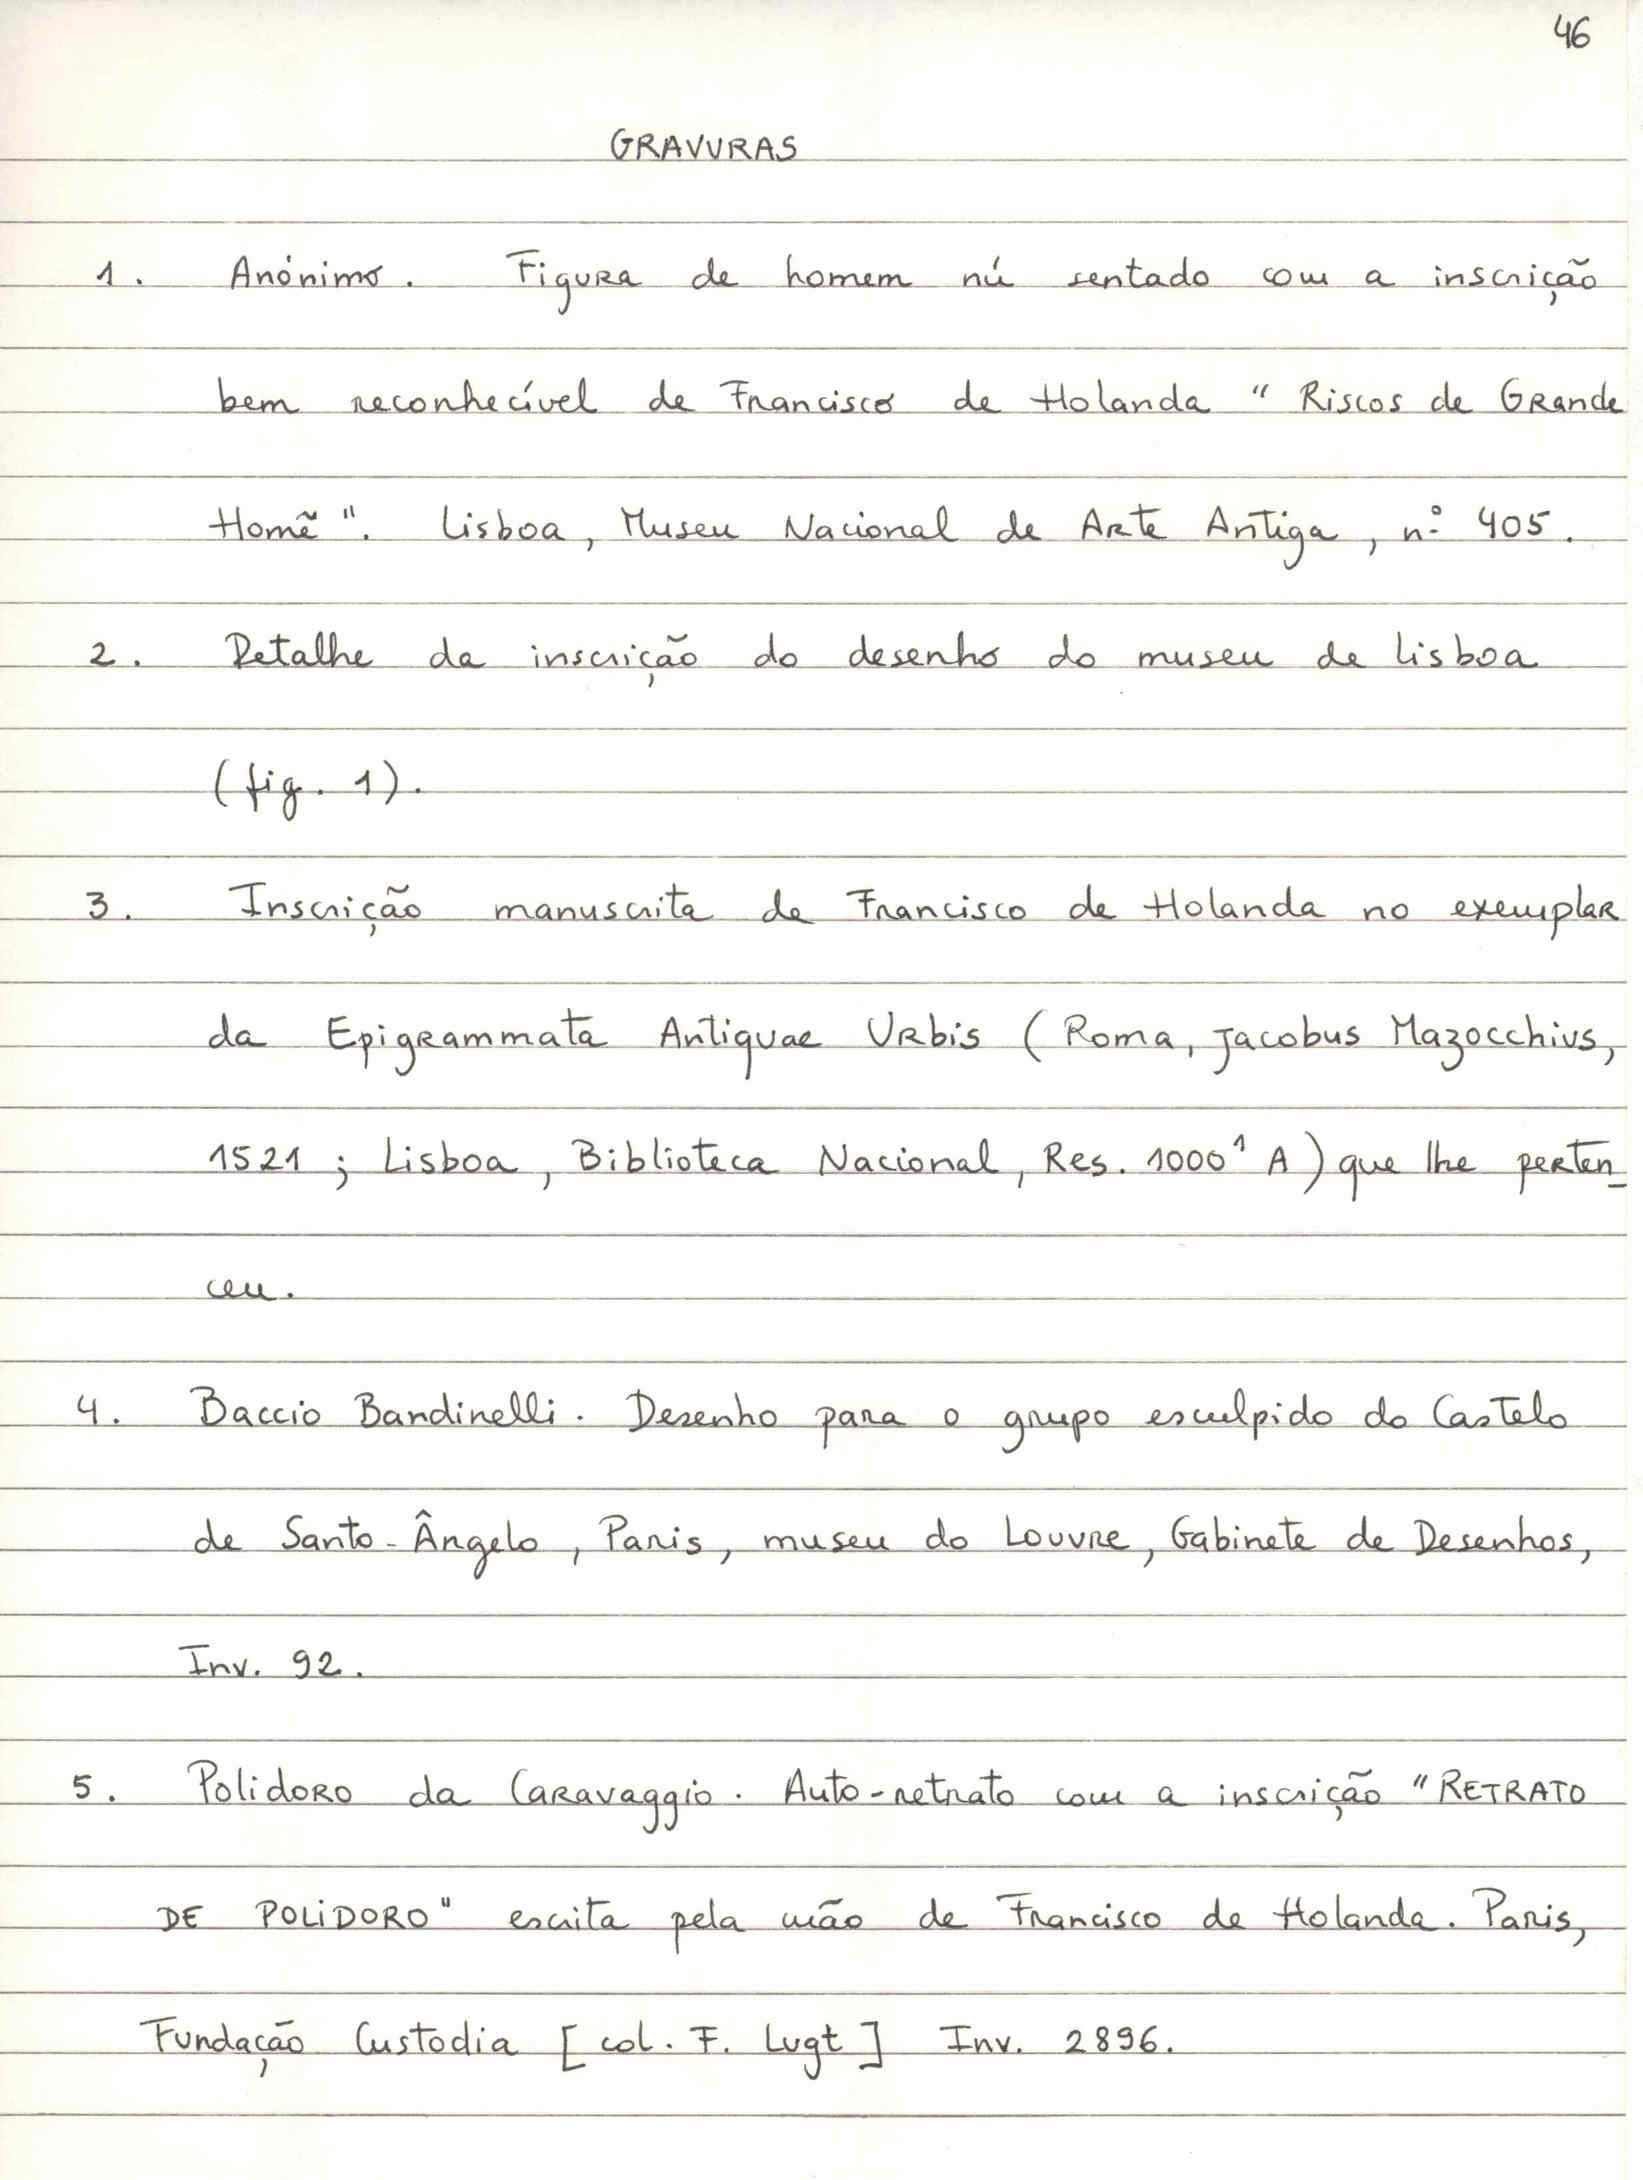 46
GRAVURAS
1. Anónimo. Figura de homem nú sentado com a inscrição
bem reconhecível de Francisco de Holanda "Riscos de Grande
Homẽ". Lisboa, Museu Nacional de Arte Antiga, nº 405.
2. Detalhe da inscrição do desenho do museu de Lisboa
(fig. 1).
3. Inscrição manuscrita de Francisco de Holanda no exemplar
da Epigrammata Antiquae Urbis (Roma, Jacobus Mazocchius,
1521; Lisboa, Biblioteca Nacional, Res. 1000¹ A) que lhe perten_
ceu.
4. Baccio Bandinelli. Desenho para o grupo esculpido do Castelo
de Santo-Ângelo, Paris, museu do Louvre, Gabinete de Desenhos,
Inv. 92.
5. Polidoro da Caravaggio. Auto-retrato com a inscrição "RETRATO
DE POLIDORO" escrita pela mão de Francisco de Holanda. Paris,
Fundação Custodia [col. F. Lugt] Inv. 2896.